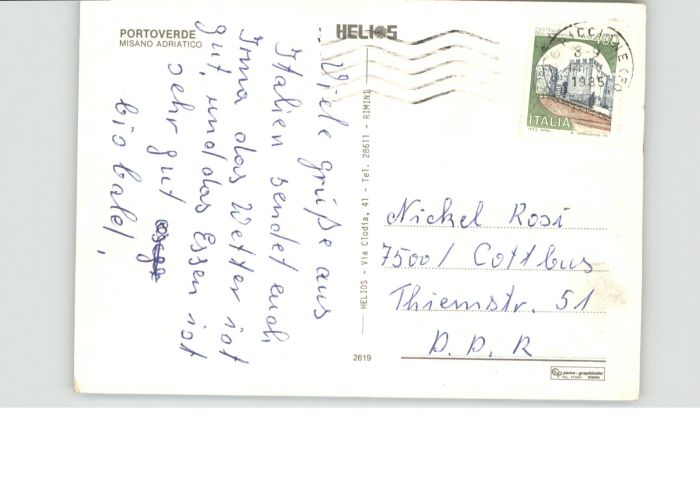 PORTOVERDE
MISANO ADRIATICO
HELIOS
Viele grüße aus
Italien sendet euch
Irma das Wetter ist
gut, und das Essen ist
sehr gut
bis bald,
HELIOS - Via Clodia, 41 - Tel. 28611 - RIMINI
2619
RICCIONE (FO)
1985
ITALIA
Nickel Rosi
7500/ Cottbus
Thiemstr. 51
D.D.R